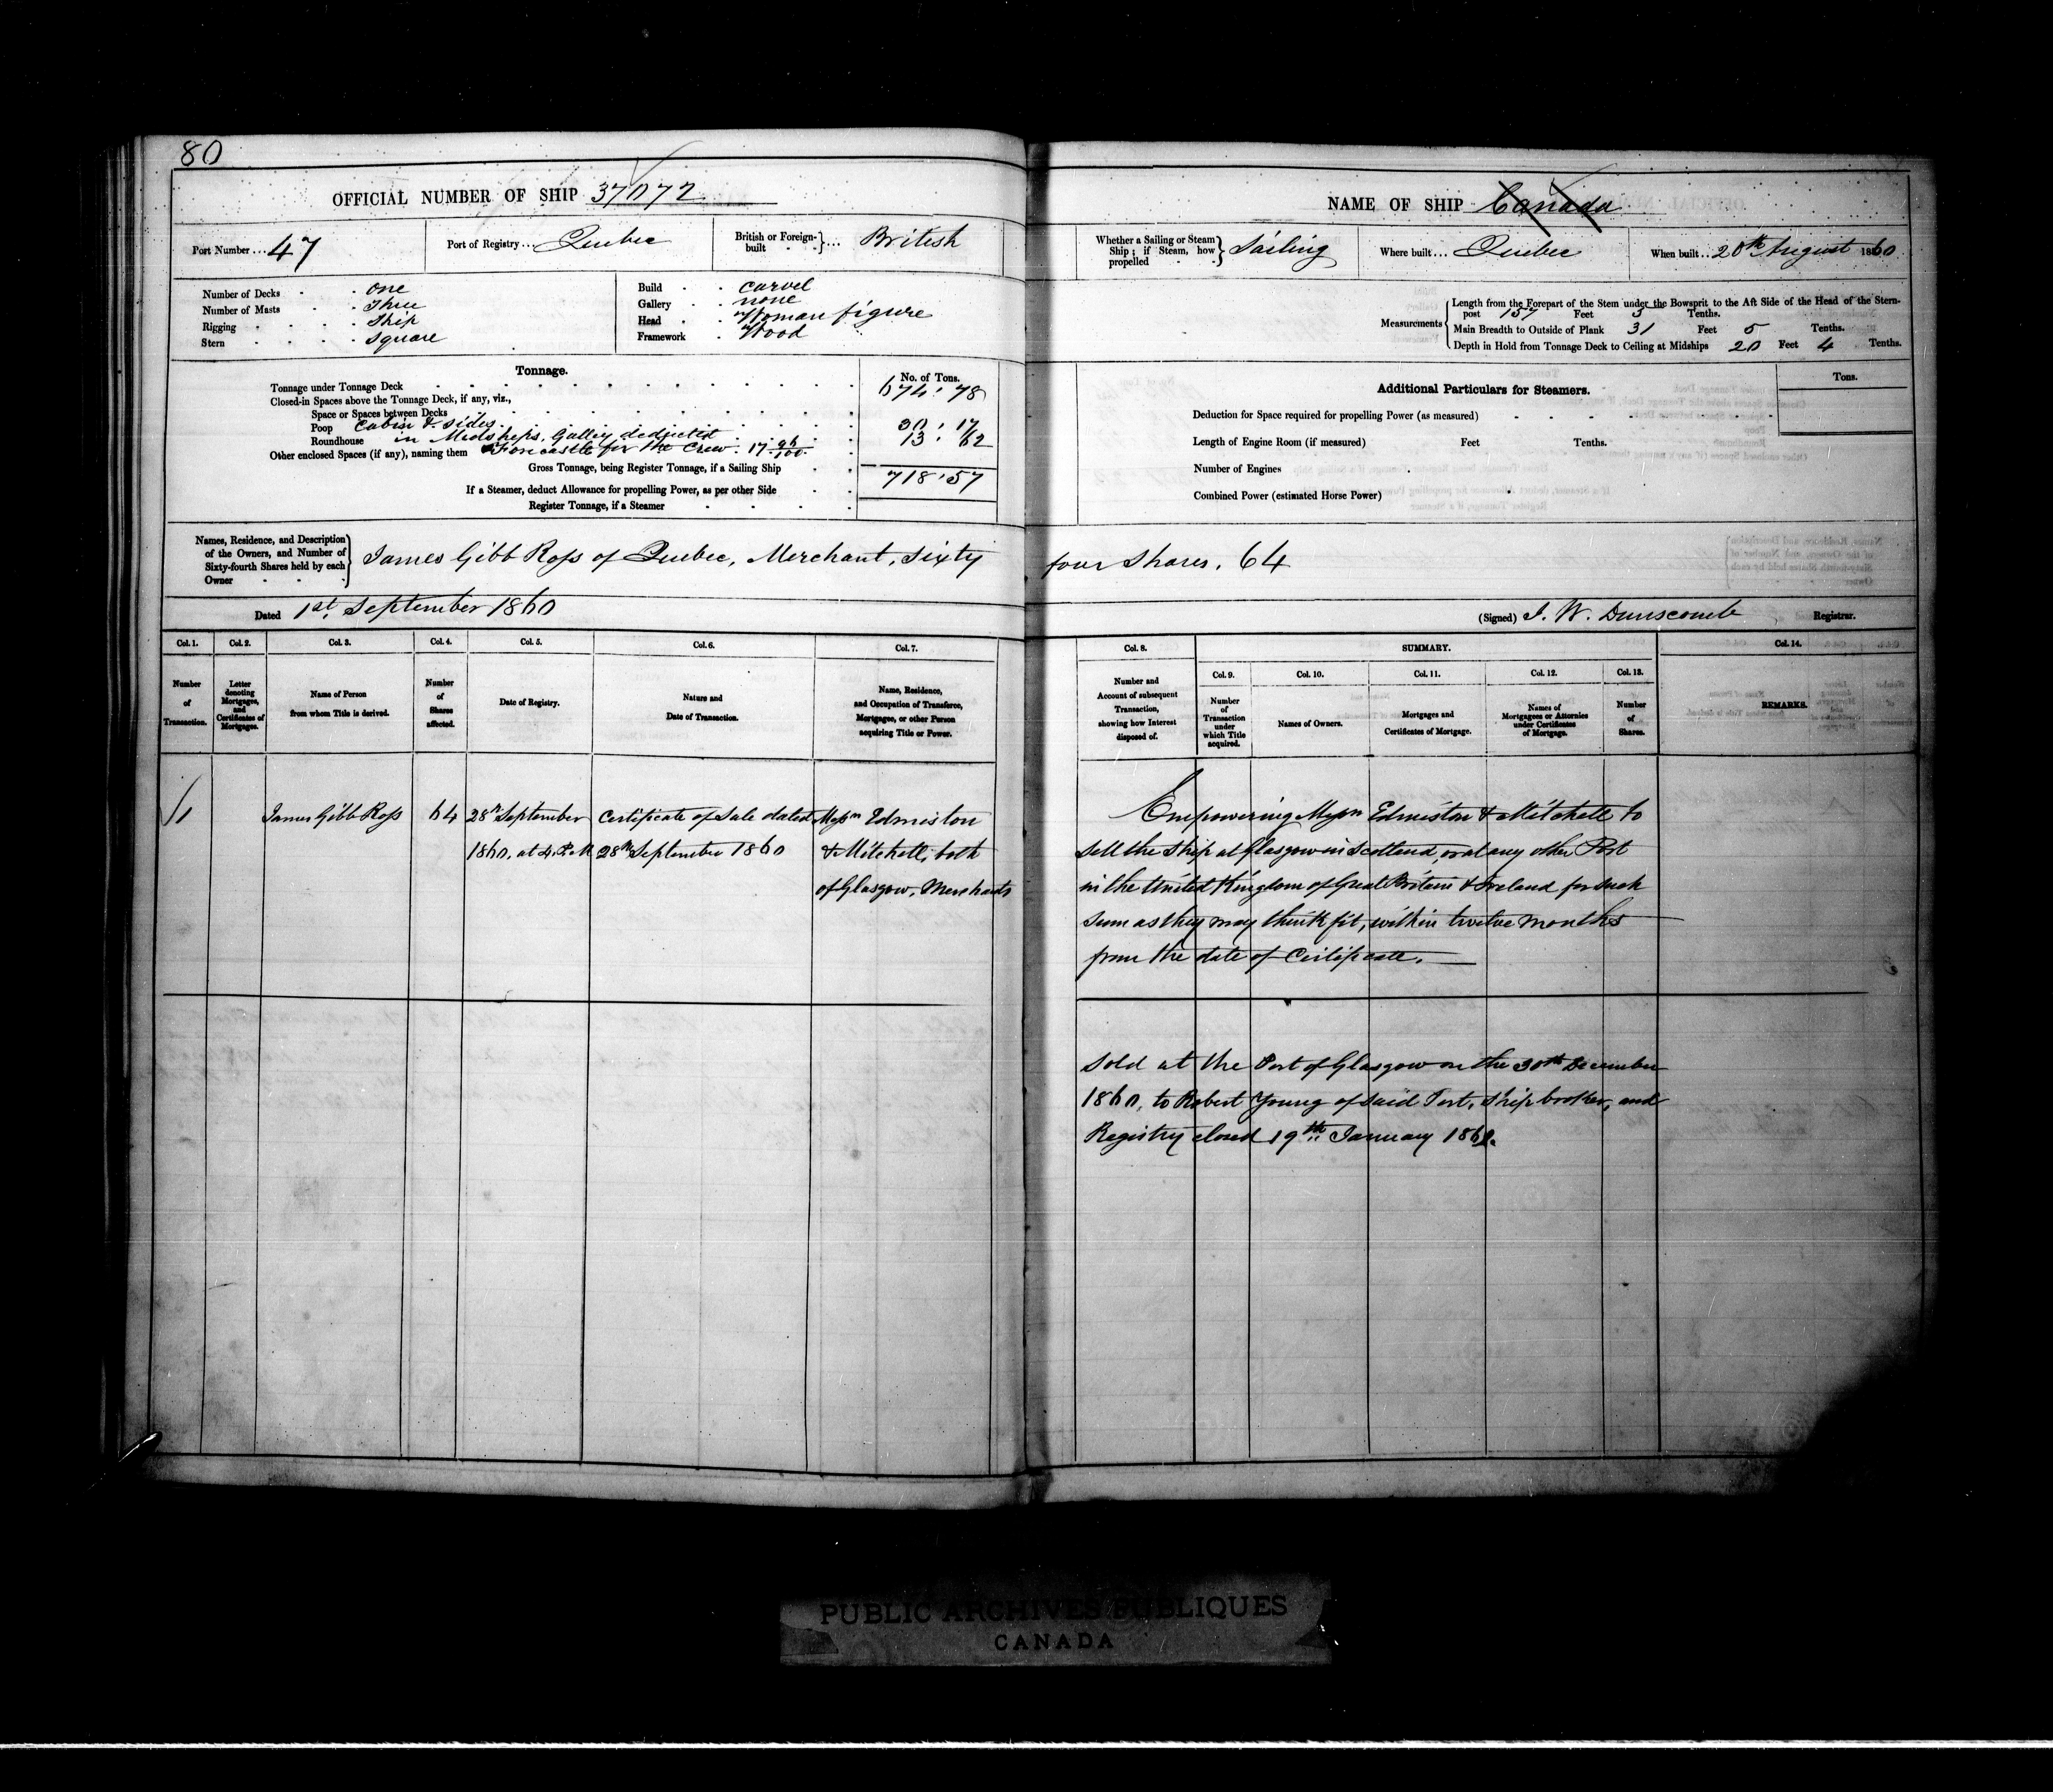 80
OFFICIAL NUMBER OF SHIP 37072
Port Number ... 47
Port of Registry ... Quebec
British or Foreign-built ... British
Number of Decks . . one
Number of Masts . . Three
Rigging . . . . Ship
Stern . . . . square
Build . . carvel
Gallery . . none
Head . . Woman figure
Framework . Wood
Tonnage.
No. of Tons.
Tonnage under Tonnage Deck 674 . 78
Closed-in Spaces above the Tonnage Deck, if any, viz.,
Space or Spaces between Decks
Poop Cabin & sides 30 . 17
Roundhouse in Midships, Galley deducted 13 . 62
Other enclosed Spaces (if any), naming them Forecastle for the Crew . 17 96/100
Gross Tonnage, being Register Tonnage, if a Sailing Ship 718 . 57
If a Steamer, deduct Allowance for propelling Power, as per other Side
Register Tonnage, if a Steamer
Names, Residence, and Description of the Owners, and Number of Sixty-fourth Shares held by each Owner
James Gibb Ross of Quebec, Merchant, Sixty
Dated 1st September 1860
Col. 1. Col. 2. Col. 3. Col. 4. Col. 5. Col. 6. Col. 7.
Number of Transaction.
Letter denoting Mortgages, and Certificates of Mortgages.
Name of Person from whom Title is derived.
Number of Shares affected.
Date of Registry.
Nature and Date of Transaction.
Name, Residence, and Occupation of Transferee, Mortgagee, or other Person acquiring Title or Power.
1 James Gibb Ross 64 28th September Certificate of Sale dated Messrs Edmiston
1860, at 4 P.M 28th September 1860 & Mitchell, both
of Glasgow, Merchants
NAME OF SHIP Canada
Whether a Sailing or Steam Ship; if Steam, how propelled Sailing
Where built ... Quebec
When built .. 20th August 1860
Measurements
Length from the Forepart of the Stem under the Bowsprit to the Aft Side of the Head of the Stern-
post 157 Feet 3 Tenths.
Main Breadth to Outside of Plank 31 Feet 5 Tenths.
Depth in Hold from Tonnage Deck to Ceiling at Midships 20 Feet 4 Tenths.
Additional Particulars for Steamers.
Tons.
Deduction for Space required for propelling Power (as measured)
Length of Engine Room (if measured) Feet Tenths.
Number of Engines
Combined Power (estimated Horse Power)
four Shares. 64
(Signed) J. W. Dunscomb Registrar.
Col. 8. SUMMARY. Col. 14.
Col. 9. Col. 10. Col. 11. Col. 12. Col. 13.
Number and Account of subsequent Transaction, showing how Interest disposed of.
Number of Transaction under which Title acquired.
Names of Owners.
Mortgages and Certificates of Mortgage.
Names of Mortgagees or Attornies under Certificates of Mortgage.
Number of Shares.
REMARKS.
Empowering Messrs Edmiston & Mitchell to
sell the Ship at Glasgow in Scotland, or at any other Port
in the United Kingdom of Great Britain & Ireland for such
sum as they may think fit, within twelve months
from the date of Certificate.
Sold at the Port of Glasgow on the 30th December
1860, to Robert Young of said Port, Ship broker, and
Registry closed 19th January
PUBLIC ARCHIVES PUBLIQUES
CANADA